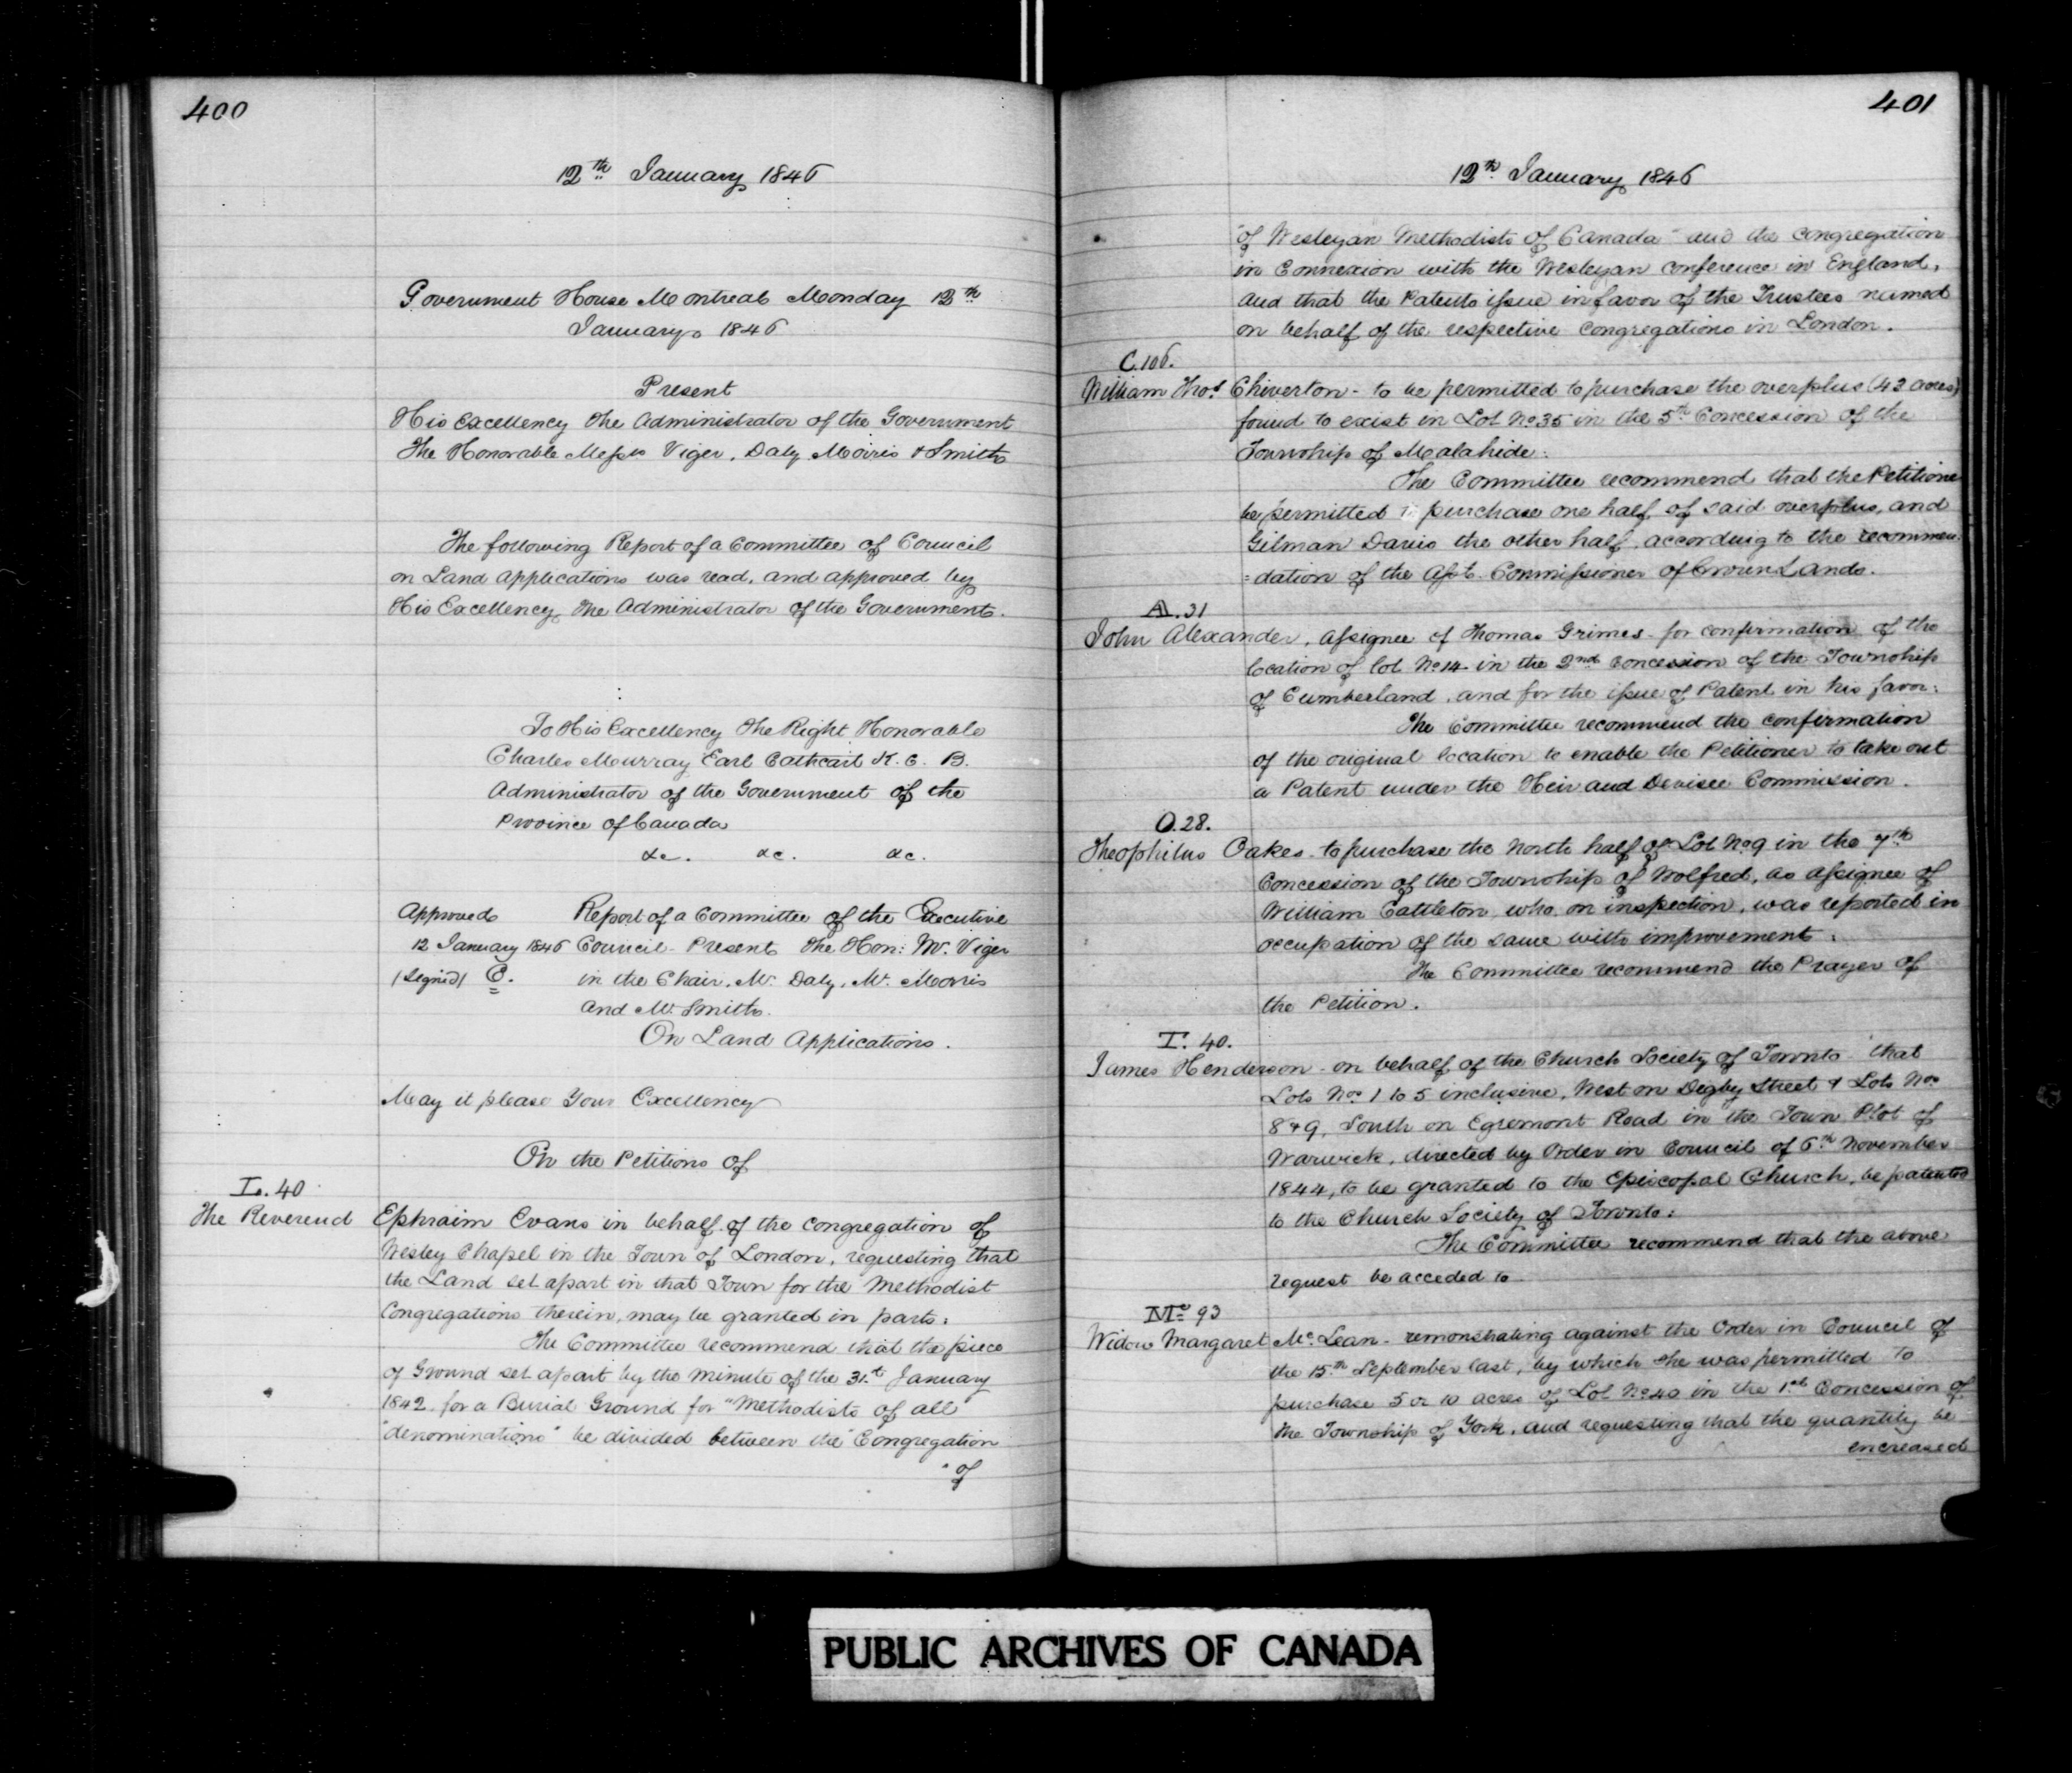 400
12th January 1846
Government House Montreal Monday 12th
January 1846
Present
His Excellency the Administrator of the Government
The Honorable Messrs Viger, Daly Morris & Smith
The following Report of a Committee of Council
on Land Applications was read, and approved by
His Excellency the Administrator of the Government.
To His Excellency the Right Honorable
Charles Murray Earl Cathcart K. C. B.
Administrator of the Government of the
Province of Canada
&c. &c. &c.
Approved
12 January 1846
(Signed) C.
Report of a Committee of the Executive
Council - Present The Hon: Mr. Viger
in the Chair, Mr. Daly, Mr. Morris
and Mr. Smith.
On Land Applications.
May it please Your Excellency
On the Petitions of
L. 40
The Reverend Ephraim Evans in behalf of the congregation of
Wesley Chapel in the Town of London, requesting that
the Land set apart in that Town for the Methodist
Congregations therein, may be granted in parts:
The Committee recommend that the piece
of Ground set apart by the minute of the 31st January
1842 for a Burial Ground for "Methodists of all
"denominations" be divided between the "Congregation
"of
401
12th January 1846
"of Wesleyan Methodists of Canada" and the congregation
in Connexion with the Wesleyan conference in England,
and that the Patents issue in favor of the Trustees named
on behalf of the respective congregations in London.
C. 106.
William Thos. Chiverton - to be permitted to purchase the overplus (42 acres)
found to exist in Lot No 35 in the 5th Concession of the
Township of Malahide:
The Committee recommend that the Petitione
be permitted to purchase one half of said overplus, and
Gilman Davis the other half, according to the recommen:
=dation of the Asst. Commissioner of Crown Lands.
A. 31
John Alexander, Assignee of Thomas Grimes - for confirmation of the
location of lot No 14 in the 2nd Concession of the Township
of Cumberland, and for the issue of Patent in his favor:
The Committee recommend the confirmation
of the original location to enable the Petitioner to take out
a Patent under the Heir and Devisee Commission.
O. 28.
Theophilus Oakes - to purchase the North half of Lot No 9 in the 7th
Concession of the Township of Wolfred, as Assignee of
William Cattleton who on inspection, was reported in
occupation of the same with improvement:
The Committee recommend the Prayer of
the Petition.
T. 40.
James Henderson - on behalf of the Church Society of Toronto that
Lots Nos 1 to 5 inclusive, West on Digby Street & Lots Nos
8 & 9, South on Egremont Road in the Town Plot of
Warwick, directed by Order in Council of 6th November
1844, to be granted to the Episcopal Church, be patented
to the Church Society of Toronto:
The Committee recommend that the above
request be acceded to
Mc 93
Widow Margaret Mc Lean - remonstrating against the Order in Council of
the 15th September last, by which she was permitted to
purchase 5 or 10 acres of Lot No 40 in the 1st Concession of
the Township of York, and requesting that the quantity be
encreased
PUBLIC ARCHIVES OF CANADA